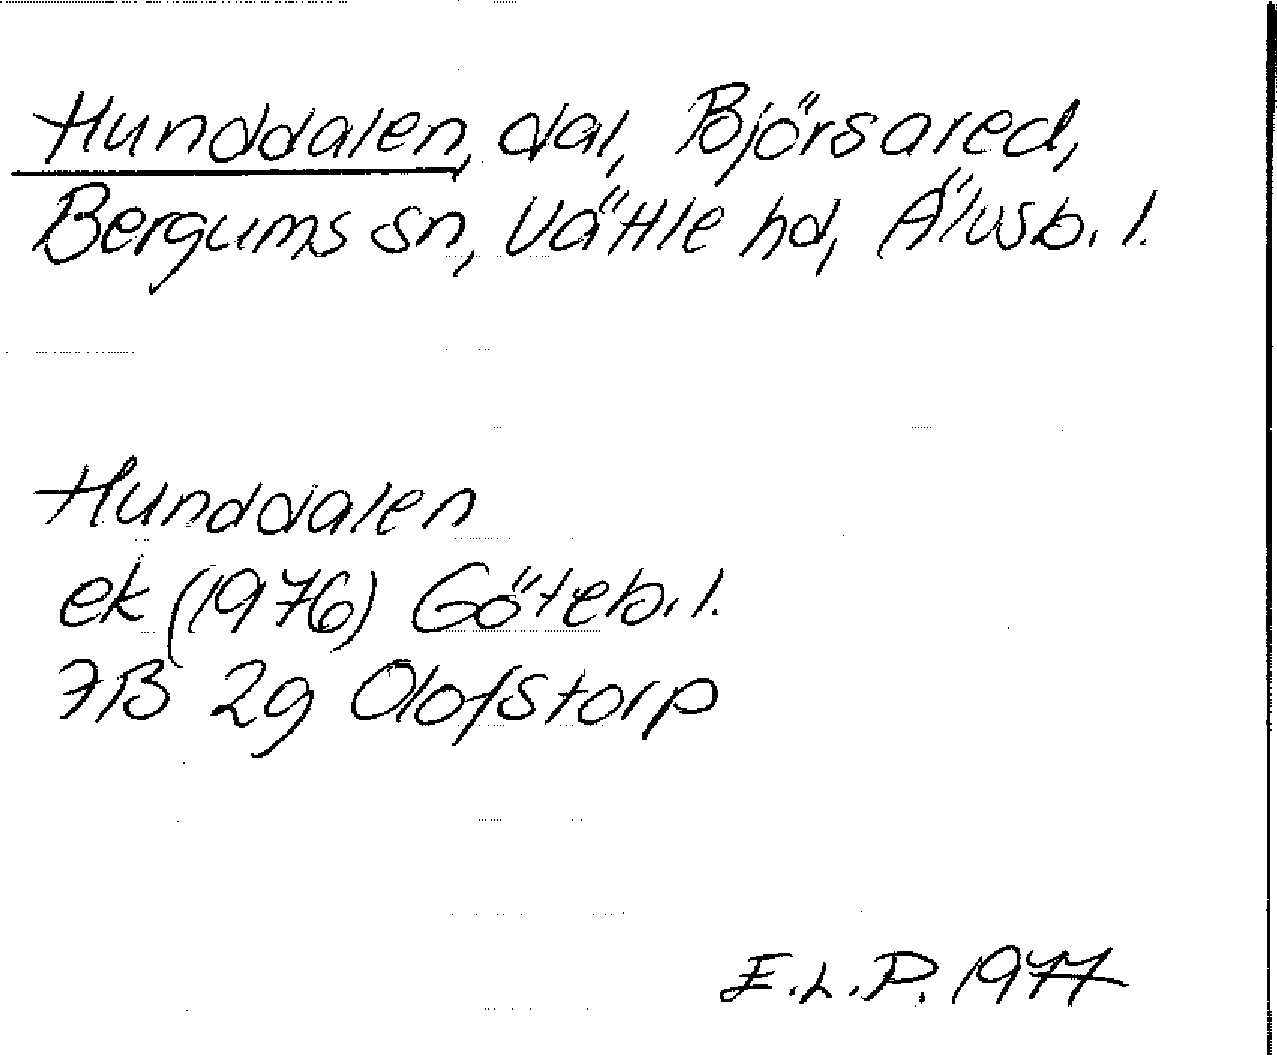 Hunddalen, dal, Björsared,
Bergums sn, Vättle hd, Älvsb. l.
Hunddalen
ek (1976) Göteb. l.
7B 2g Olofstorp
E.L.P. 1977